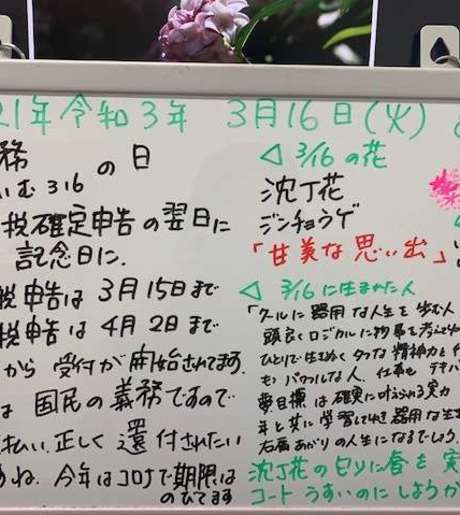 21年 令和3年 3月16日(火)
務 の 日
む316
税確定申告の翌日に
記念日に.
税申告は 3月15日まで
税申告は 4月2日まで
から 受付が 開始されてます.
は 国民の義務ですので
払い.正しく 還付されたい
ね. 今年はコロナで期限は
のびてます
◁ 3/16 の花
沈丁花
ジンチョウゲ
「甘美な思い出」
◁ 3/16 に生まれた人
「クールに 器用な人生を 歩む人
頭良く ロジカルに物事を考えて
ひとりで生きぬく タフな 精神力と
も) パワフルな人. 仕事も テキパ
夢目標 は 確実に叶えられる実力
年と共に 学習していき 器用な生
右肩あがりの人生になるでしょう.
沈丁花の匂りに春を実
コート うすいのに しようか